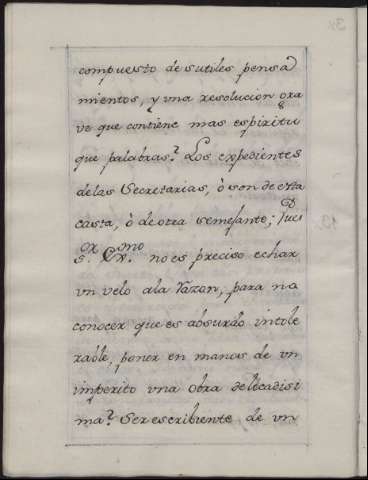 compuesto de sutiles pensa
mientos, y una resolucion gra
ve que contiene mas espiritu
que palabras? Los expedientes
de las Secretarias, ò son de esta
casta, ò de otra semejante; Luci
S.or Ex.mo no es preciso echar
un velo ala razon, para no
conocer que es absurdo intole
rable, poner en manos de un
imperito una obra delicadisi
ma? Ser escribiente de un